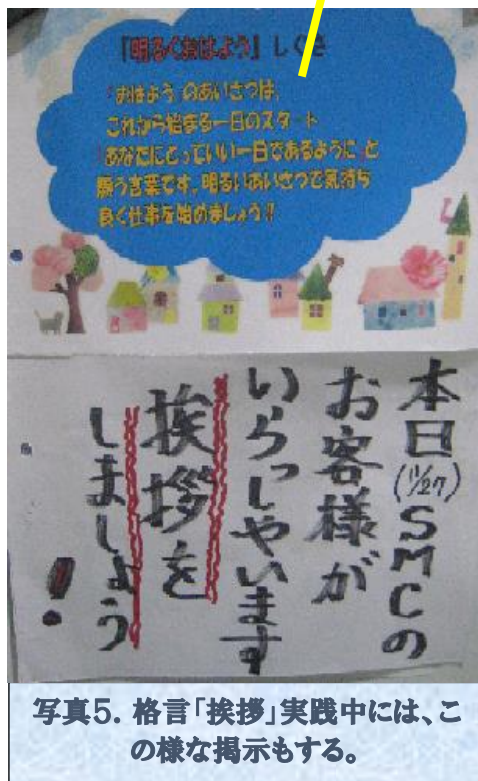 「明るくおはよう」しぐさ
「おはよう」のあいさつは、
これから始まる一日のスタート
「あなたにとっていい一日であるように」と
願う言葉です。明るいあいさつで気持ち
良く仕事を始めましょう!!
本日(11/27)SMCの
お客様が
いらっしゃいます
挨拶を
しましょう!
写真5. 格言「挨拶」実践中には、こ
の様な掲示もする。